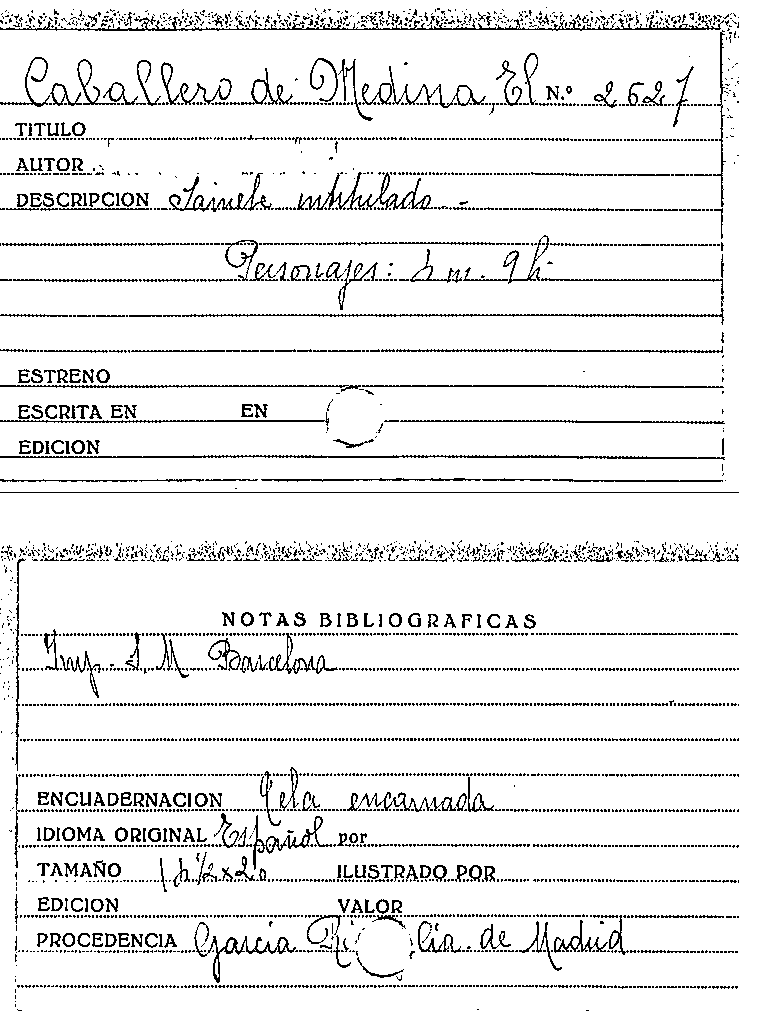 Caballero de Medina, El N.º 2627
TITULO
AUTOR
DESCRIPCION Sainete intitulado -
Personajes: m. 9 h.
ESTRENO
ESCRITA EN EN
EDICION
NOTAS BIBLIOGRAFICAS
Imp. S. M Barcelona
ENCUADERNACION Tela encarnada
IDIOMA ORIGINAL Español por
TAMAÑO ILUSTRADO POR
EDICION VALOR
PROCEDENCIA García de Madrid